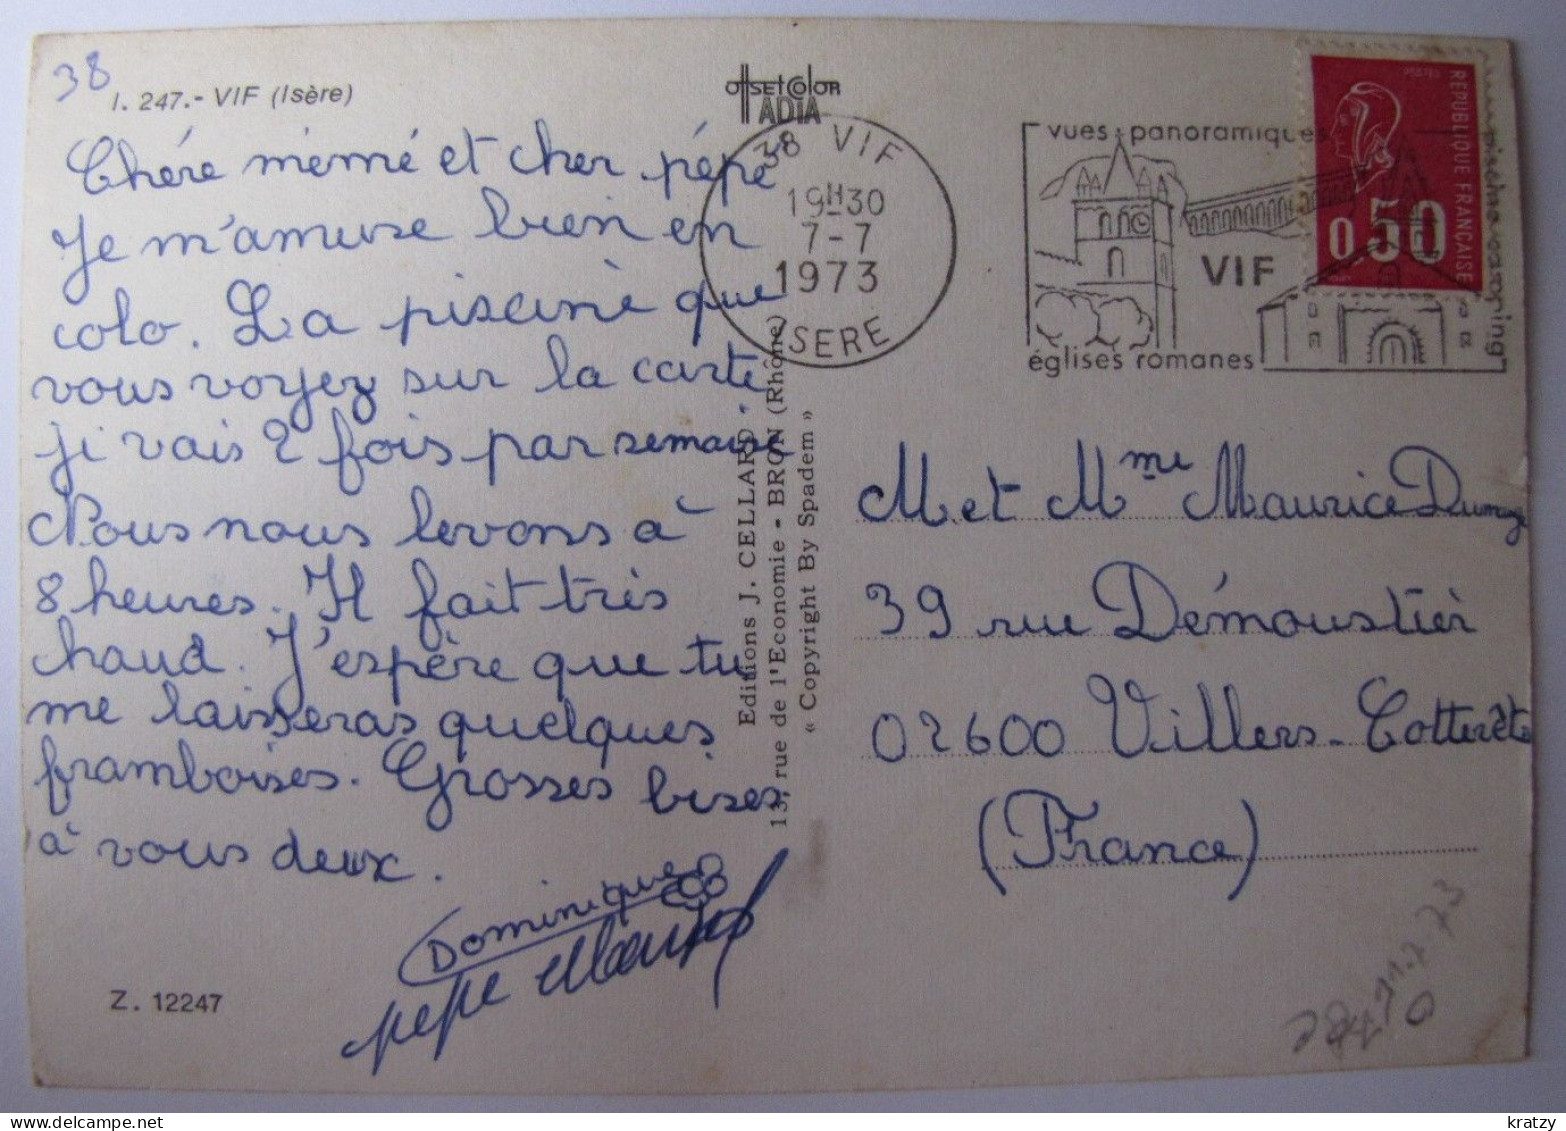 38
I. 247.- VIF (Isère)
OffSET COlOR
ADIA
Chère mémé et cher pépé
Je m'amuse bien en
colo. La piscine que
vous voyez sur la carte
j'i vais 2 fois par semaine
Nous nous levons à
8 heures. Il fait très
chaud. J'espère que tu
me laisseras quelques
framboises. Grosses bises
à vous deux.
Dominique
pepe
Z. 12247
Editions J. CELLARD
13, rue de l'Economie - BRON (Rhône)
« Copyright By Spadem »
38 VIF
19H30
7-7
1973
ISERE
vues panoramiques
VIF
églises romanes
piscine camping
REPUBLIQUE FRANÇAISE
0,50
M et Mme Maurice
39 rue Démoustier
02600 Villers-Cotterêts
(France)
kratzy